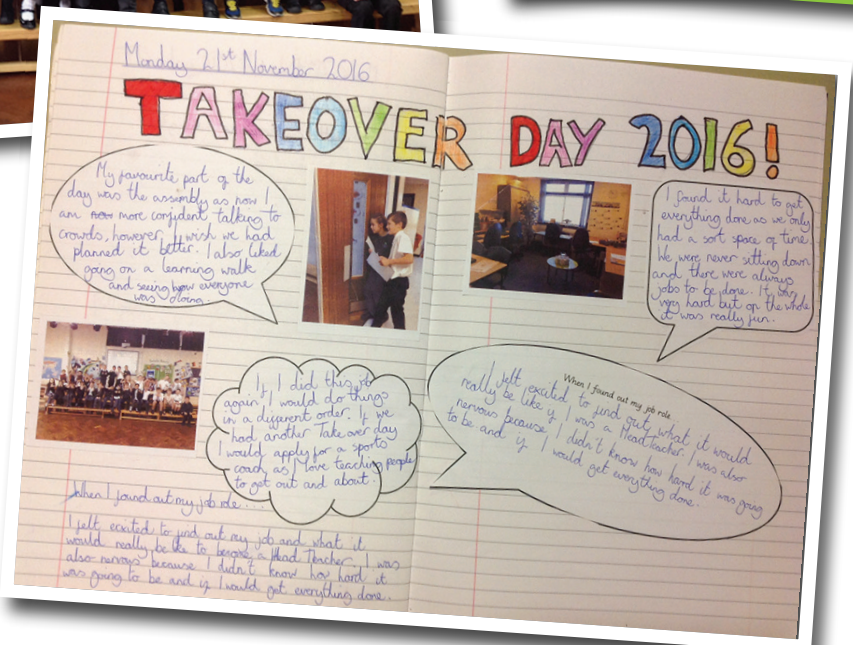 Monday 21st November 2016
TAKEOVER DAY 2016!
My favourite part of the
day was the assembly as now I
am now more confident talking to
crowds, however, I wish we had
planned it better. I also liked
going on a learning walk
and seeing how everyone
was doing.
I found it hard to get
everything done as we only
had a sort space of time
We were never sitting down
and there were always
jobs to be done. It was
very hard but on the whole
it was really fun.
If I did this job
again, I would do things
in a different order. If we
had another Takeover day
I would apply for a sports
coach as I love teaching people
to get out and about.
When I found out my job role
I felt excited to find out what it would
really be like if I was a HeadTeacher. I was also
nervous because I didn't know how hard it was going
to be and if I would get everything done.
When I found out my job role....
I felt excited to find out my job and what it
would really be like to become a Head Teacher. I was
also nervous because I didn't know how hard it
was going to be and if I would get everything done.